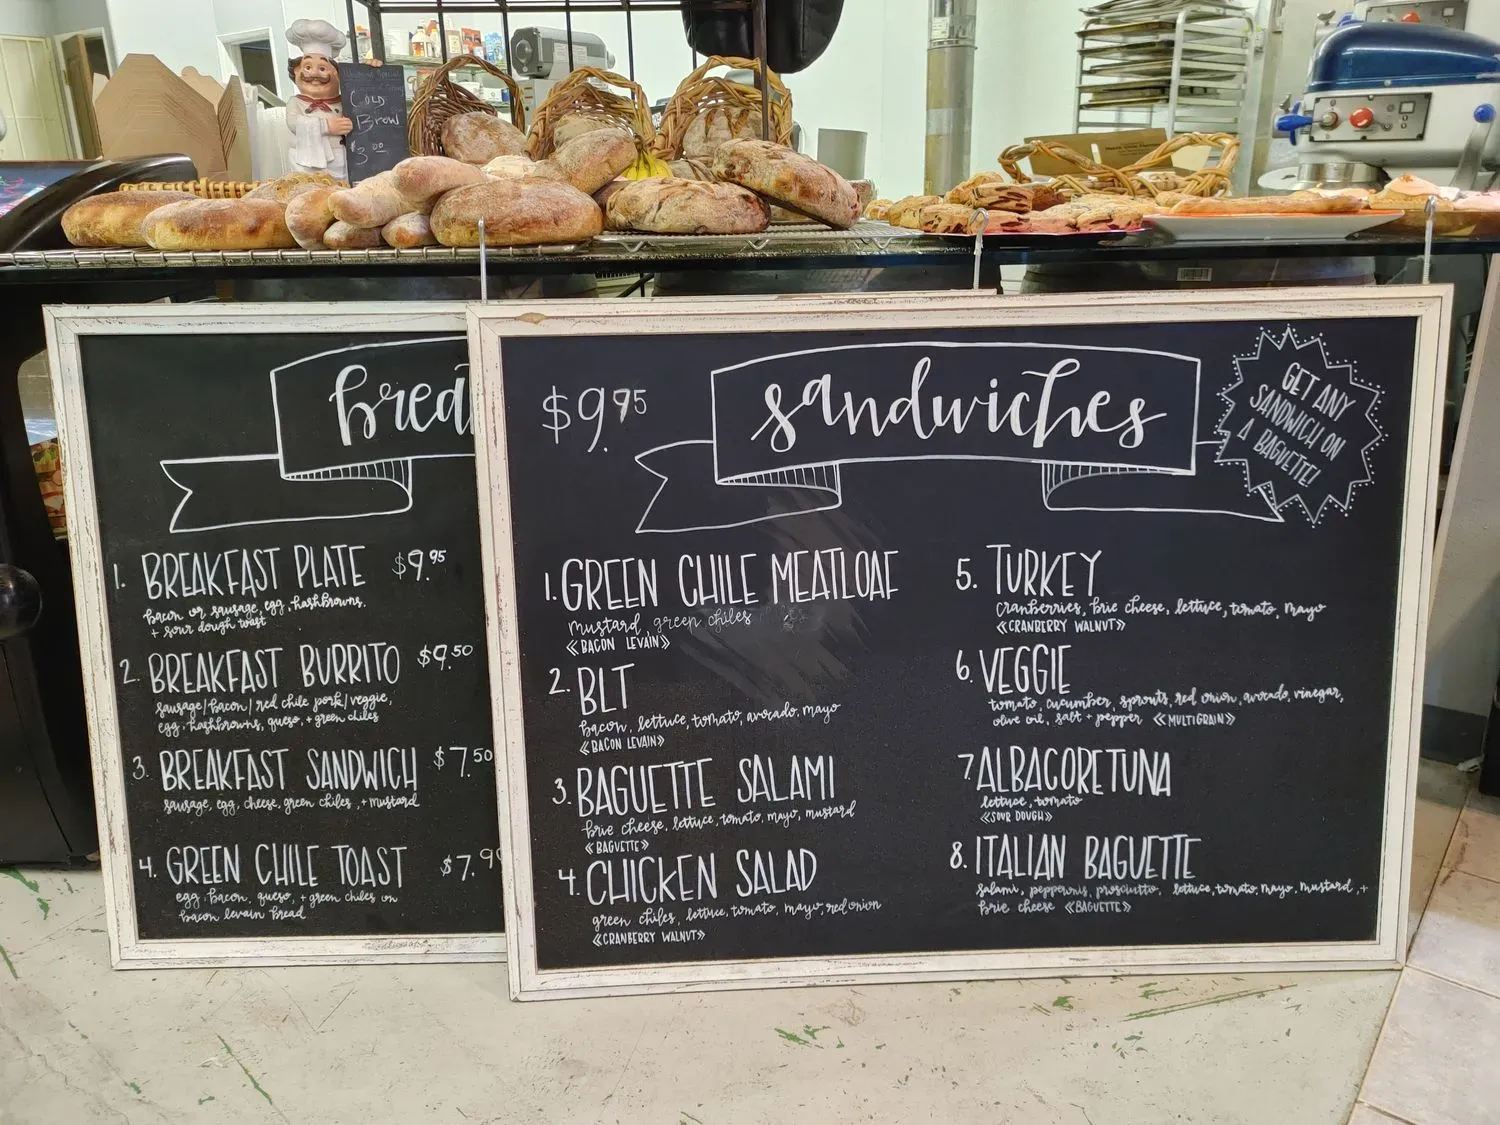 COLD
Brew
$3.00
brea
1. BREAKFAST PLATE $9.95
bacon or sausage, egg, hashbrowns,
+ sour dough toast
2. BREAKFAST BURRITO $9.50
sausage/bacon/red chile pork/veggie,
egg, hashbrowns, queso, + green chiles
3. BREAKFAST SANDWICH $7.50
sausage, egg, cheese, green chiles, + mustard
4. GREEN CHILE TOAST $7.99
egg, bacon, queso, + green chiles on
bacon levain bread
$9.95
sandwiches
GET ANY
SANDWICH ON
A BAGUETTE!
1. GREEN CHILE MEATLOAF
mustard, green chiles
«BACON LEVAIN»
2. BLT
bacon, lettuce, tomato, avocado, mayo
«BACON LEVAIN»
3. BAGUETTE SALAMI
brie cheese, lettuce, tomato, mayo, mustard
«BAGUETTE»
4. CHICKEN SALAD
green chiles, lettuce, tomato, mayo, red onion
«CRANBERRY WALNUT»
5. TURKEY
cranberries, brie cheese, lettuce, tomato, mayo
«CRANBERRY WALNUT»
6. VEGGIE
tomato, cucumber, sprouts, red onion, avocado, vinegar,
olive oil, salt + pepper «MULTIGRAIN»
7. ALBACORE TUNA
lettuce, tomato
«SOUR DOUGH»
8. ITALIAN BAGUETTE
salami, pepperonis, prosciutto, lettuce, tomato, mayo, mustard, +
brie cheese «BAGUETTE»